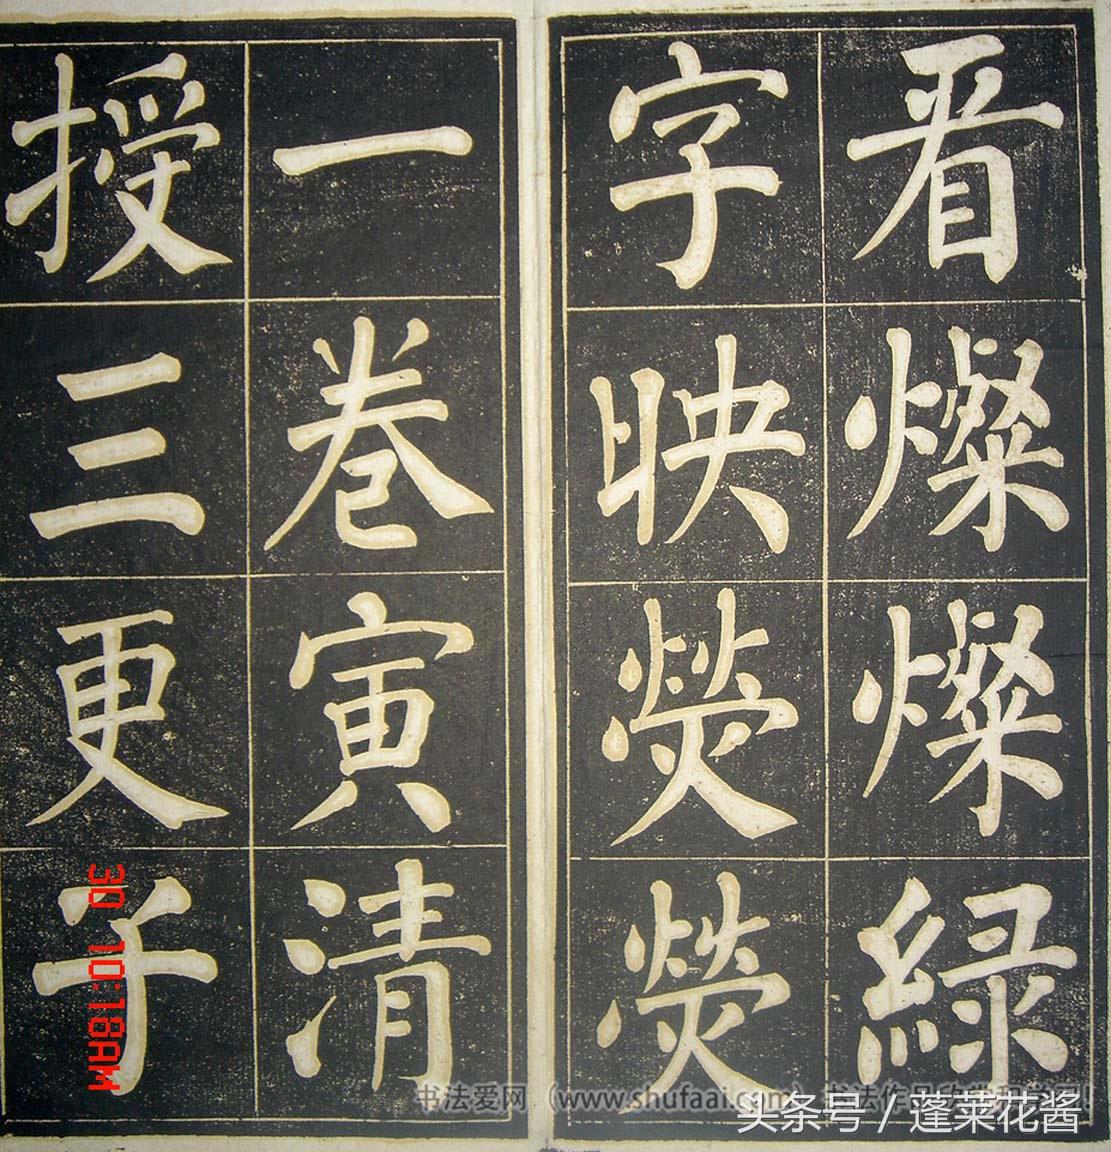 看燦燦緑
字映熒熒
一卷寅清
授三更子
30 10:18AM
书法爱网（www.shufaai.com）书法作品欣赏和学习!
头条号 / 蓬莱花酱